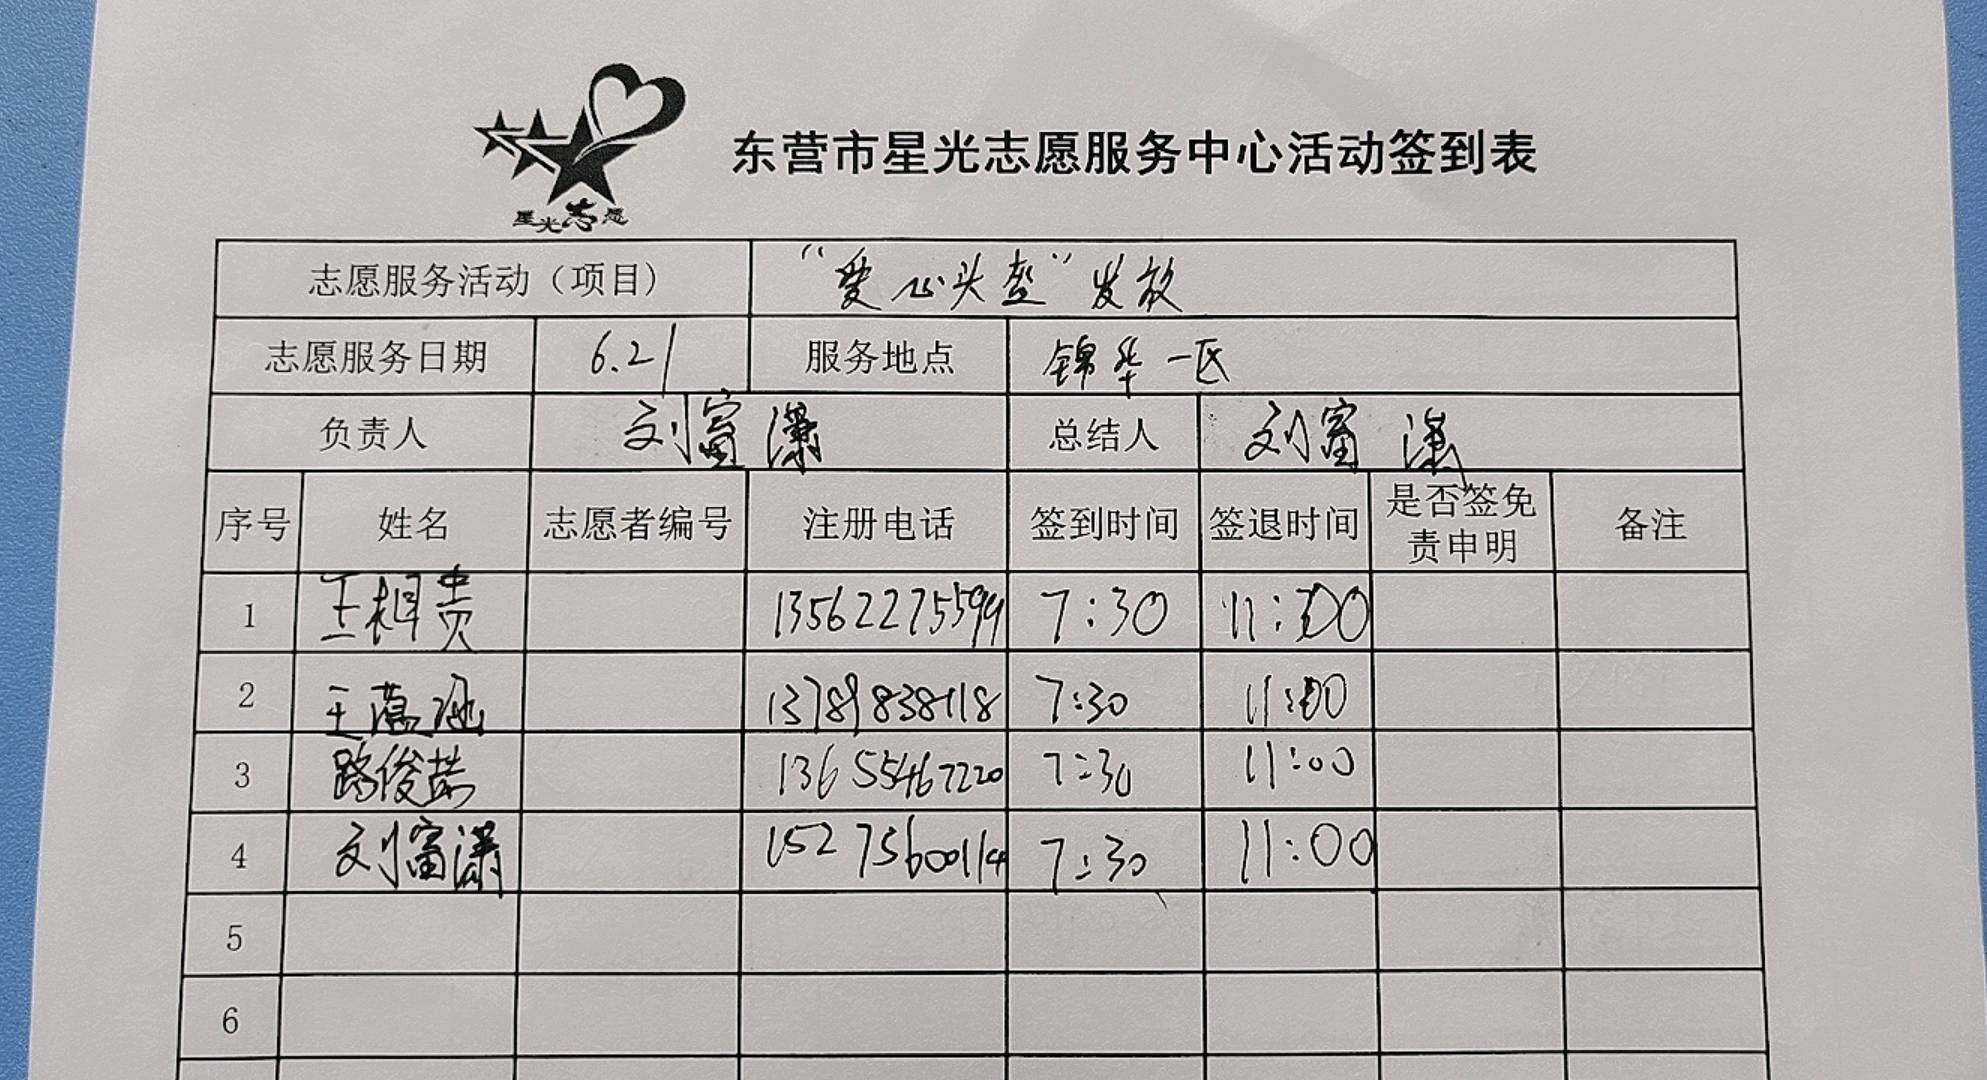 星光志愿
东营市星光志愿服务中心活动签到表
志愿服务活动（项目） “爱心头盔”发放
志愿服务日期 6.21 服务地点 锦华一区
负责人 刘富潇 总结人 刘富潇
序号 姓名 志愿者编号 注册电话 签到时间 签退时间 是否签免责申明 备注
1 王相贵 13562275599 7:30 11:00
2 王蕴涵 13789838118 7:30 11:00
3 路俊 13655467220 7:30 11:00
4 刘富潇 15275600114 7:30 11:00
5
6